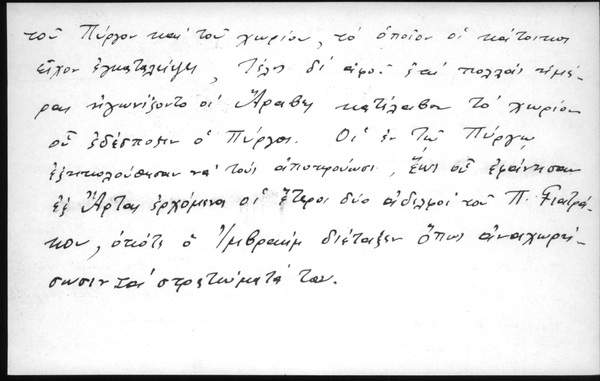 τοῦ Πύργου καὶ τοῦ χωρίου, τὸ ὁποῖον οἱ κάτοικοι
εἶχον ἐγκαταλείψει, Τέλος δι' ἀφοῦ ἐπὶ πολλὰς ἡμέ-
ρας ἠγωνίζοντο οἱ Ἄραβες κατέλαβον τὸ χωρίον
οὗ ἐδέσποζεν ὁ Πύργος. Οἱ ἐν τῷ Πύργῳ
ἐξηκολούθησαν νὰ τοὺς ἀποκρούωσι, ἕως οὗ ἐφάνησαν
ἐξ Ἄρτας ἐρχόμενοι οἱ ἕτεροι δύο ἀδελφοὶ τοῦ Π. Γιατρά-
κου, ὁπότε ὁ Ἰμβραὴμ διέταξεν ὅπως ἀναχωρή-
σωσιν τὰ στρατεύματά του.